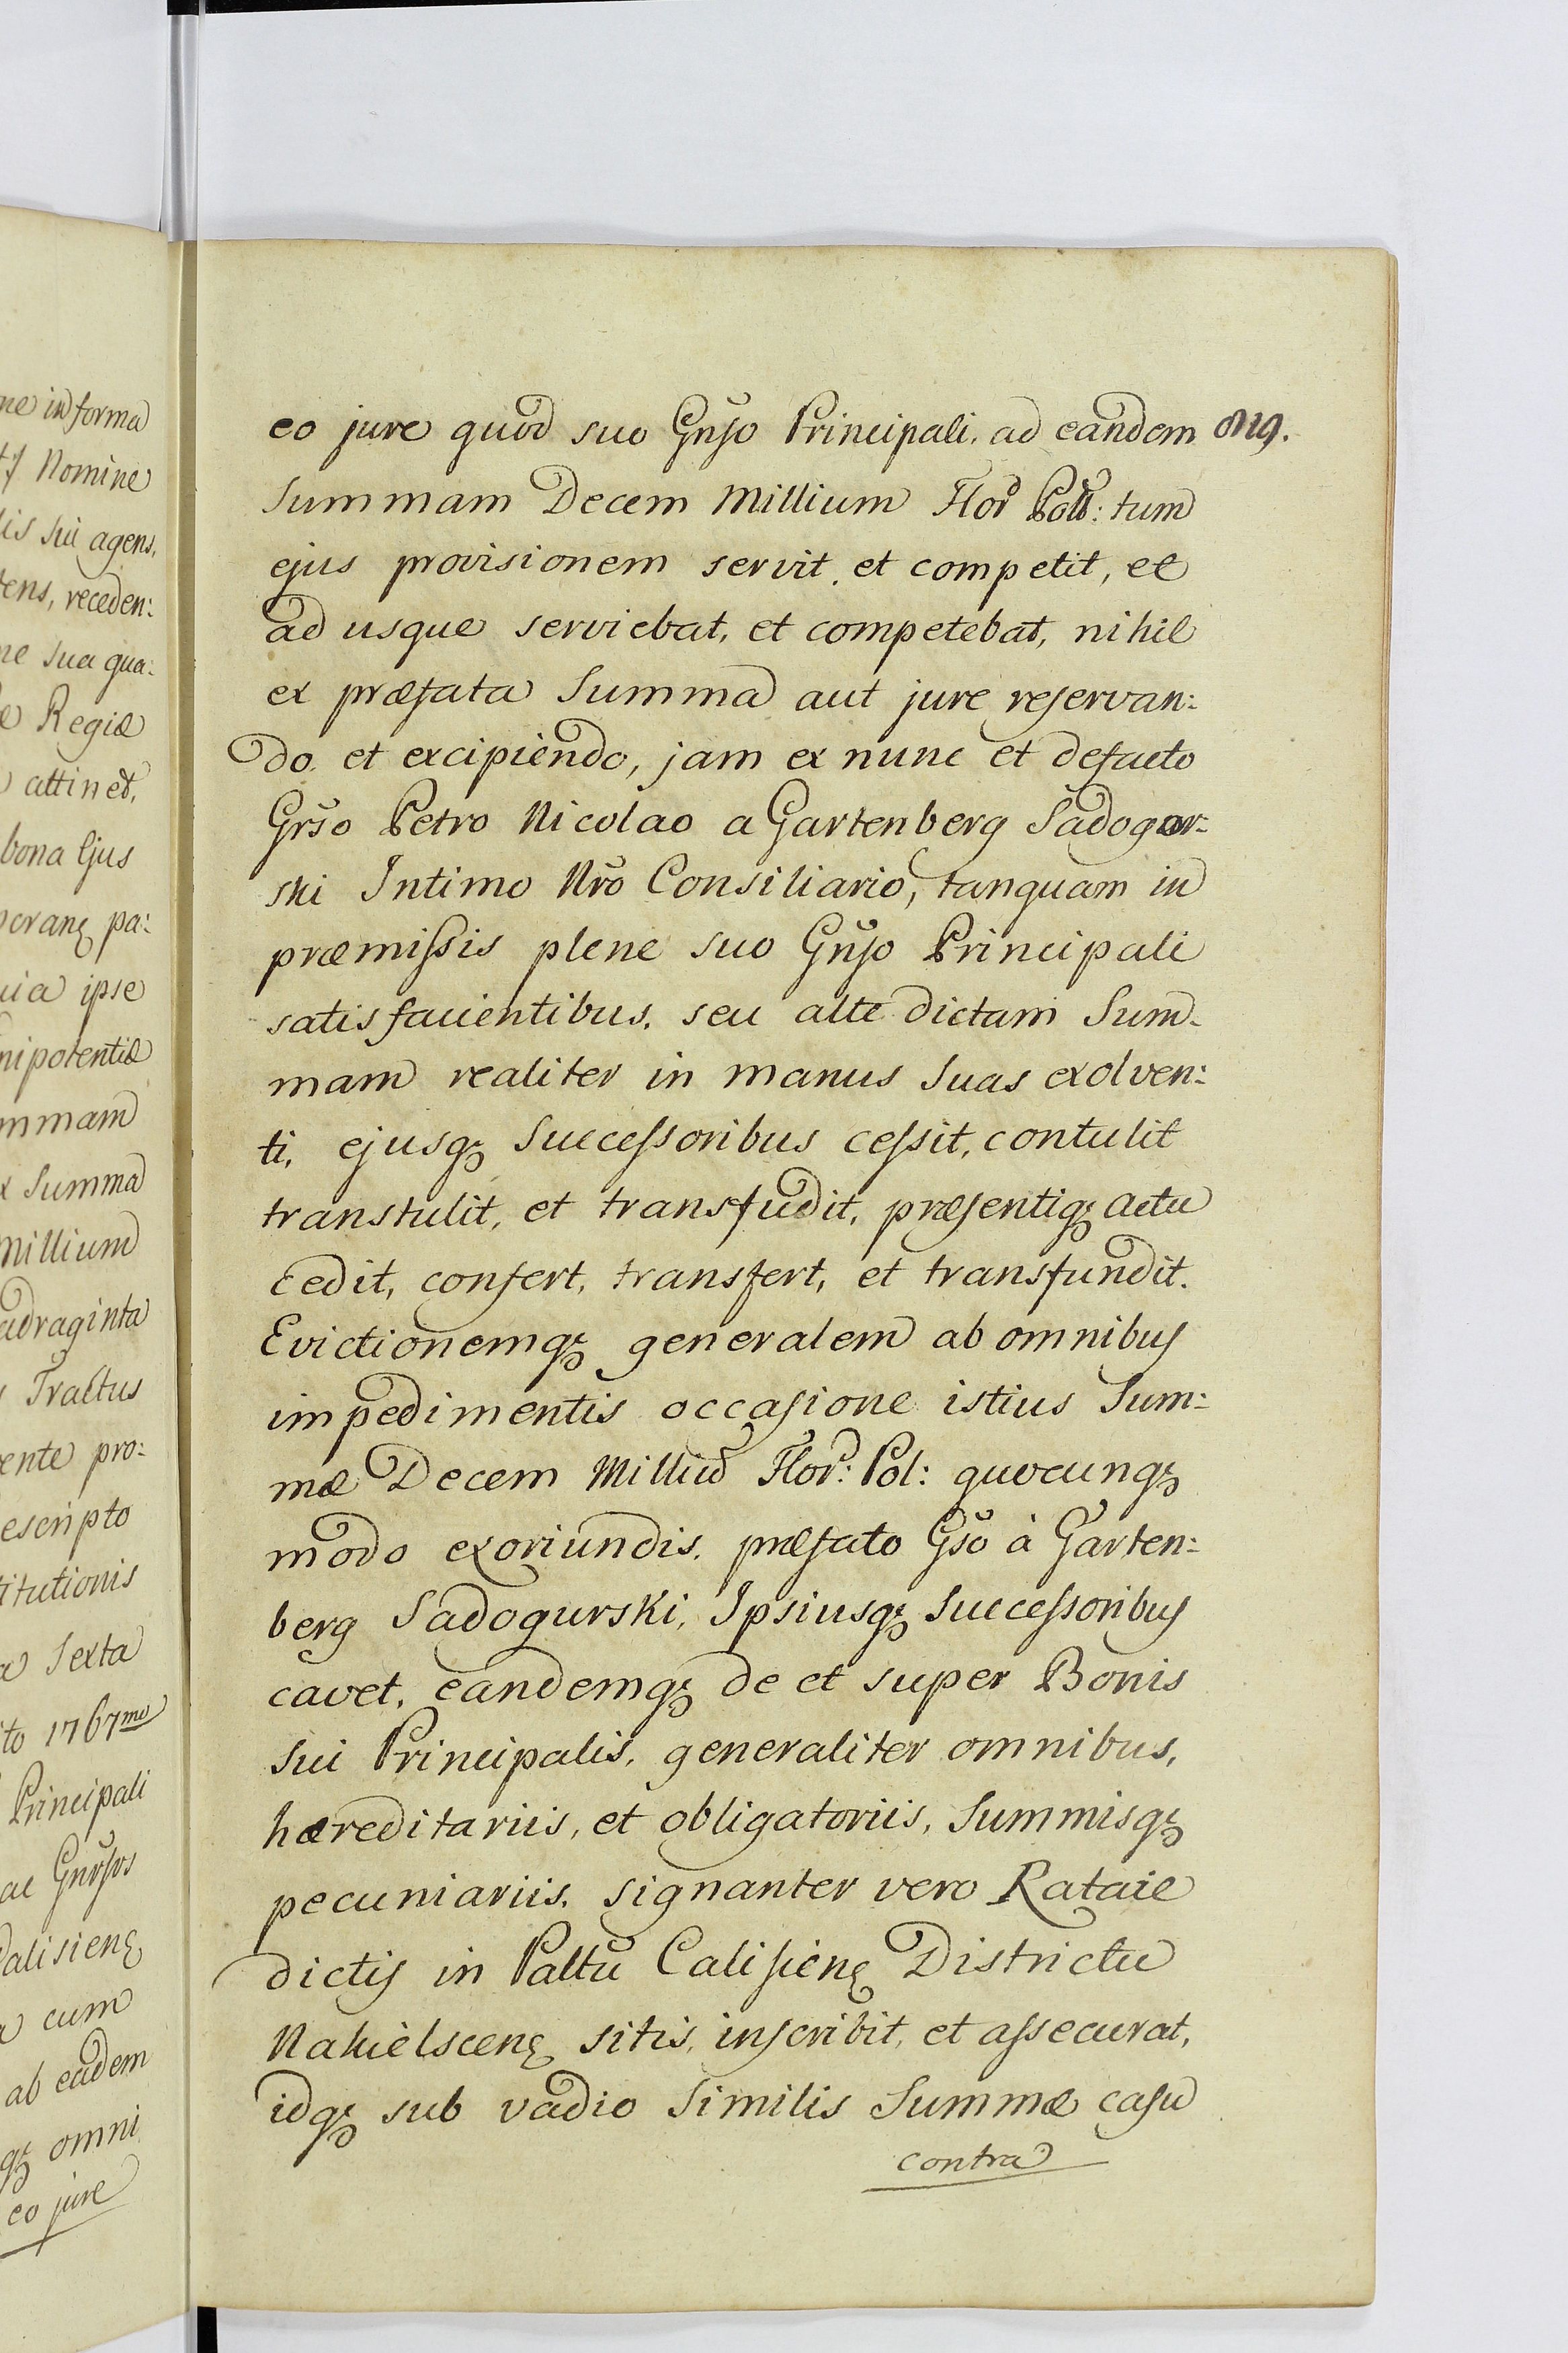 ne in forma
tj Nomine
lis sui agens,
tens, receden:
ne sua qua:
Regiæ
attinet,
bona Ejus
pa:
ipse
nipotentiæ
mmam
Summa
Millium
adraginta
Tractus
ente pro:
escripto
titutionis
Sexta
to 1767mo
Principali
ac
alisienę
cum
ab eadem
qȝ omni
eo jure
eo jure quod suo Gnŝo Principali, ad eandem 819.
Summam Decem Millium Flor Poll: tum
ejus provisionem servit, et competit, et
ad usque serviebat, et competebat, nihil
ex præfata Summa aut jure reservan:
do, et excipiendo, jam ex nunc et defacto
Grŝo Petro Nicolao a Gartenberg Sadogor:
ski Intimo Nrõ Consiliario, tanquam in
præmissis plene suo Gnŝo Principali
satisfacientibus, seu alte dictam Sum-
mam realiter in manus Suas exolven:
ti, ejusqȝ Successoribus cessit, contulit
transtulit, et transfudit, præsentiqȝ actu
Cedit, confert, transfert, et transfundit.
Evictionemqȝ generalem ab omnibus
impedimentis occasione istius Sum:
mæ Decem Milliũ Flor: Pol: quocunqȝ
modo exoriundis, præfato Gŝo à Garten:
berg Sadogurski, Ipsiusqȝ Successoribus
cavet, eandemqȝ de et super Bonis
Sui Principalis, generaliter omnibus,
hæreditariis, et obligatoriis, Summisqȝ
pecuniariis, signanter vero Rataie
dictis in Paltũ Calisienę Districtu
Nakielscenę sitis, inscribit, et assecurat,
idqȝ sub vadio Similis Summæ casu
contra